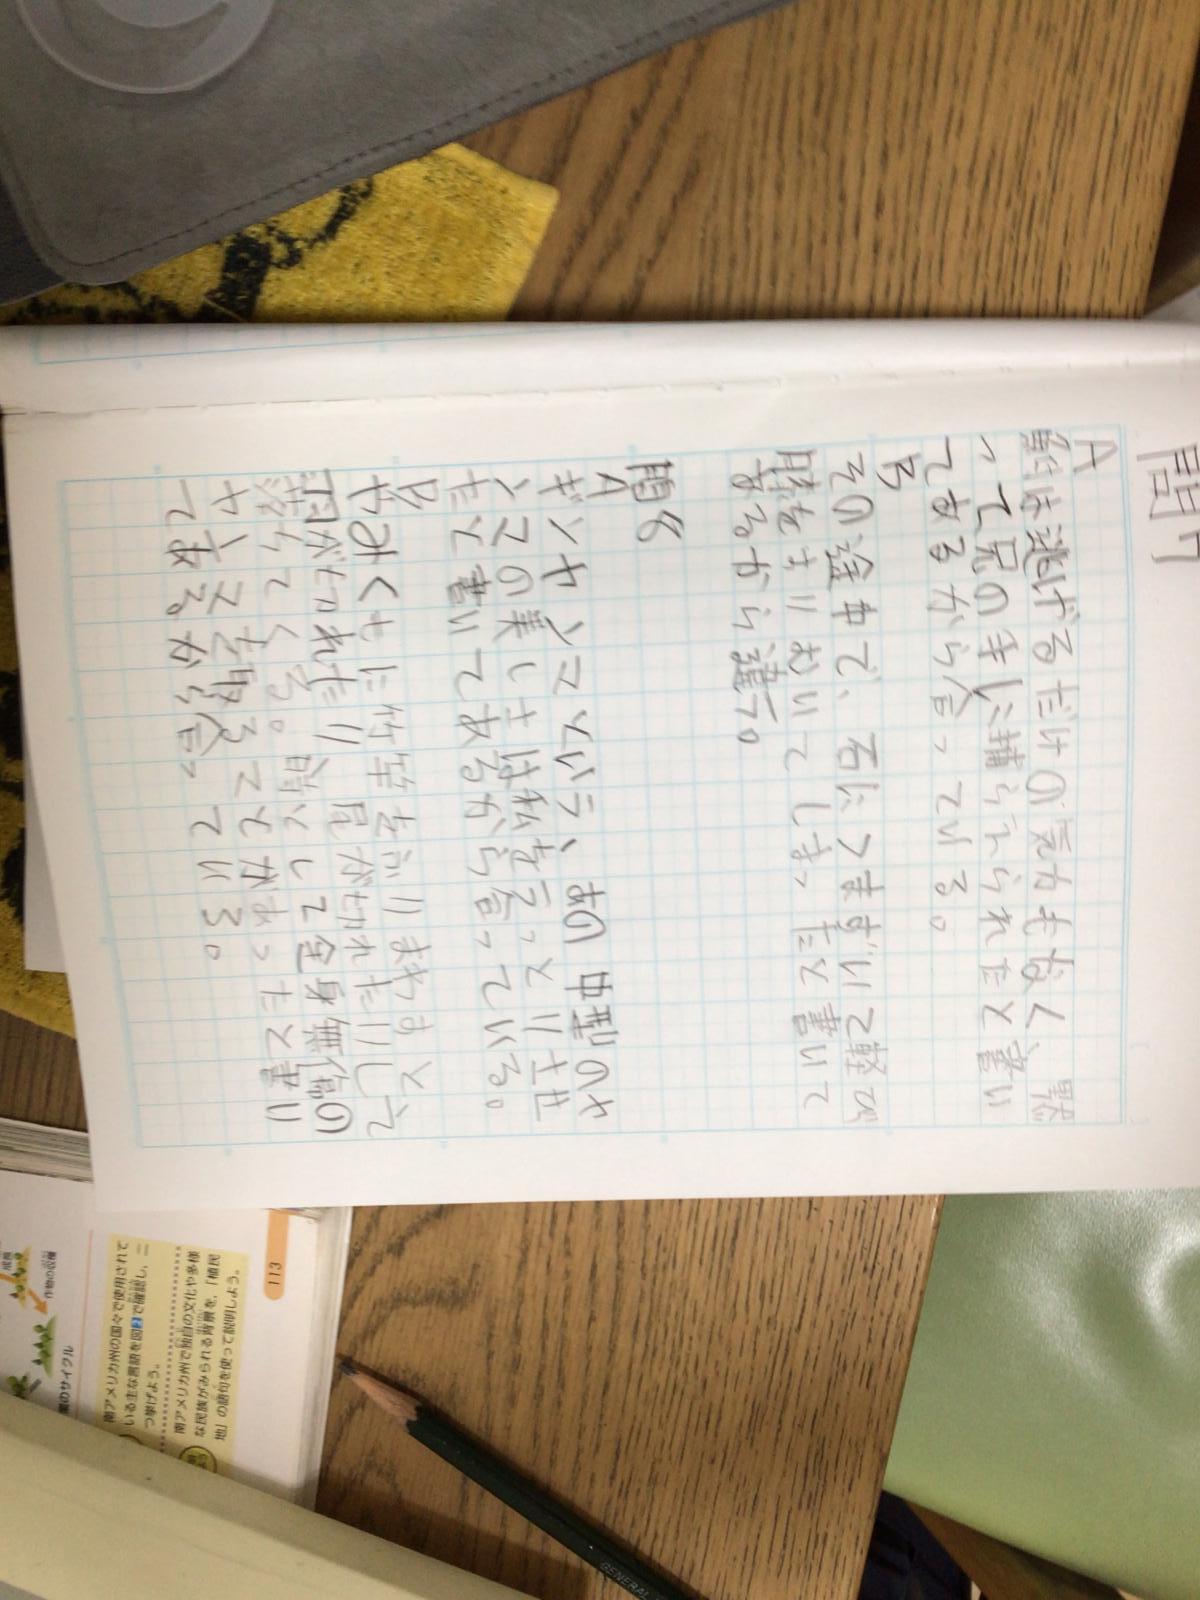 問7
A
鮒は逃げるだけの気力もなく、黙
って兄の手に捕らえられたと書い
てあるから合っている。
B
その途中で、石につまずいて転び
膝をすりむいてしまったと書いて
あるから違う。
問8
A
ギンヤンマくらい、あの空中戦のや
でその美しさは私を
たと書いてあるから合っている。
B
やみくもに竿をふりまわすと
羽が切れたり尾が切れたりして
悪くして全身無傷の
と書い
てあるから合っている。
113
南アメリカ州の国々で使用されて
いる主な言語を図2で確認し、二
つ挙げよう。
南アメリカ州で独自の文化や多様
な民族がみられる背景を、「植民
地」の語句を使って説明しよう。
作物の収穫
業のサイクル
GENERAL